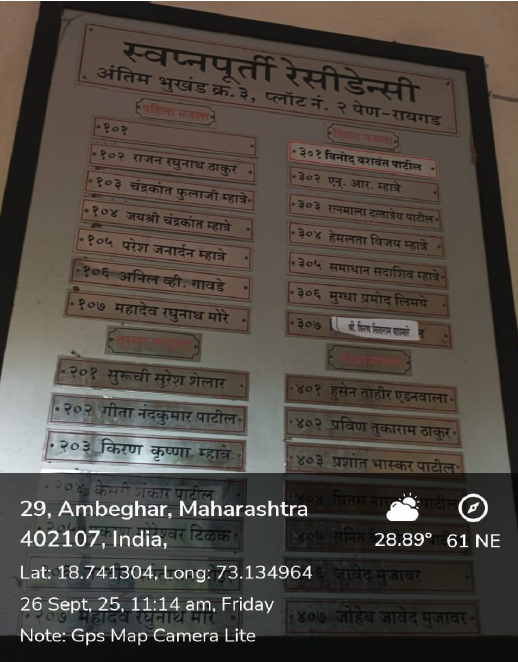 स्वप्नपूर्ती रेसीडेन्सी
अंतिम भुखंड क्र.३, प्लॉट नं. २ पेण-रायगड
पहिला मजला
१०१
१०२ राजन रघुनाथ ठाकुर
१०३ चंद्रकांत फुलाजी म्हात्रे
१०४ जयश्री चंद्रकांत म्हात्रे
१०५ परेश जनार्दन म्हात्रे
१०६ अनिल व्ही. गावडे
१०७ महादेव रघुनाथ मोरे
दुसरा मजला
२०१ सुरूची सुरेश शेलार
२०२ गीता नंदकुमार पाटील
२०३ किरण कृष्णा म्हात्रे
२०४ केसरी शंकर पाटील
टिळक
२०७ महादेव रघुनाथ मोरे
तिसरा मजला
३०१ विनोद यशवंत पाटील
३०२ एन्. आर. म्हात्रे
३०३ रत्नमाला दत्तात्रेय पाटील
३०४ हेमलता विजय म्हात्रे
३०५ समाधान सदाशिव म्हात्रे
३०६ मुग्धा प्रमोद लिमये
३०७ श्री. किरण
मजला
४०१ हुसेन ताहीर एडनवाला
४०२ प्रविण तुकाराम ठाकुर
४०३ प्रशांत भास्कर पाटील
४०४ प्रितम
४०५
जावेद मुजावर
४०७ जोहेब जावेद मुजावर
29, Ambeghar, Maharashtra
402107, India,
28.89° 61 NE
Lat: 18.741304, Long: 73.134964
26 Sept, 25, 11:14 am, Friday
Note: Gps Map Camera Lite